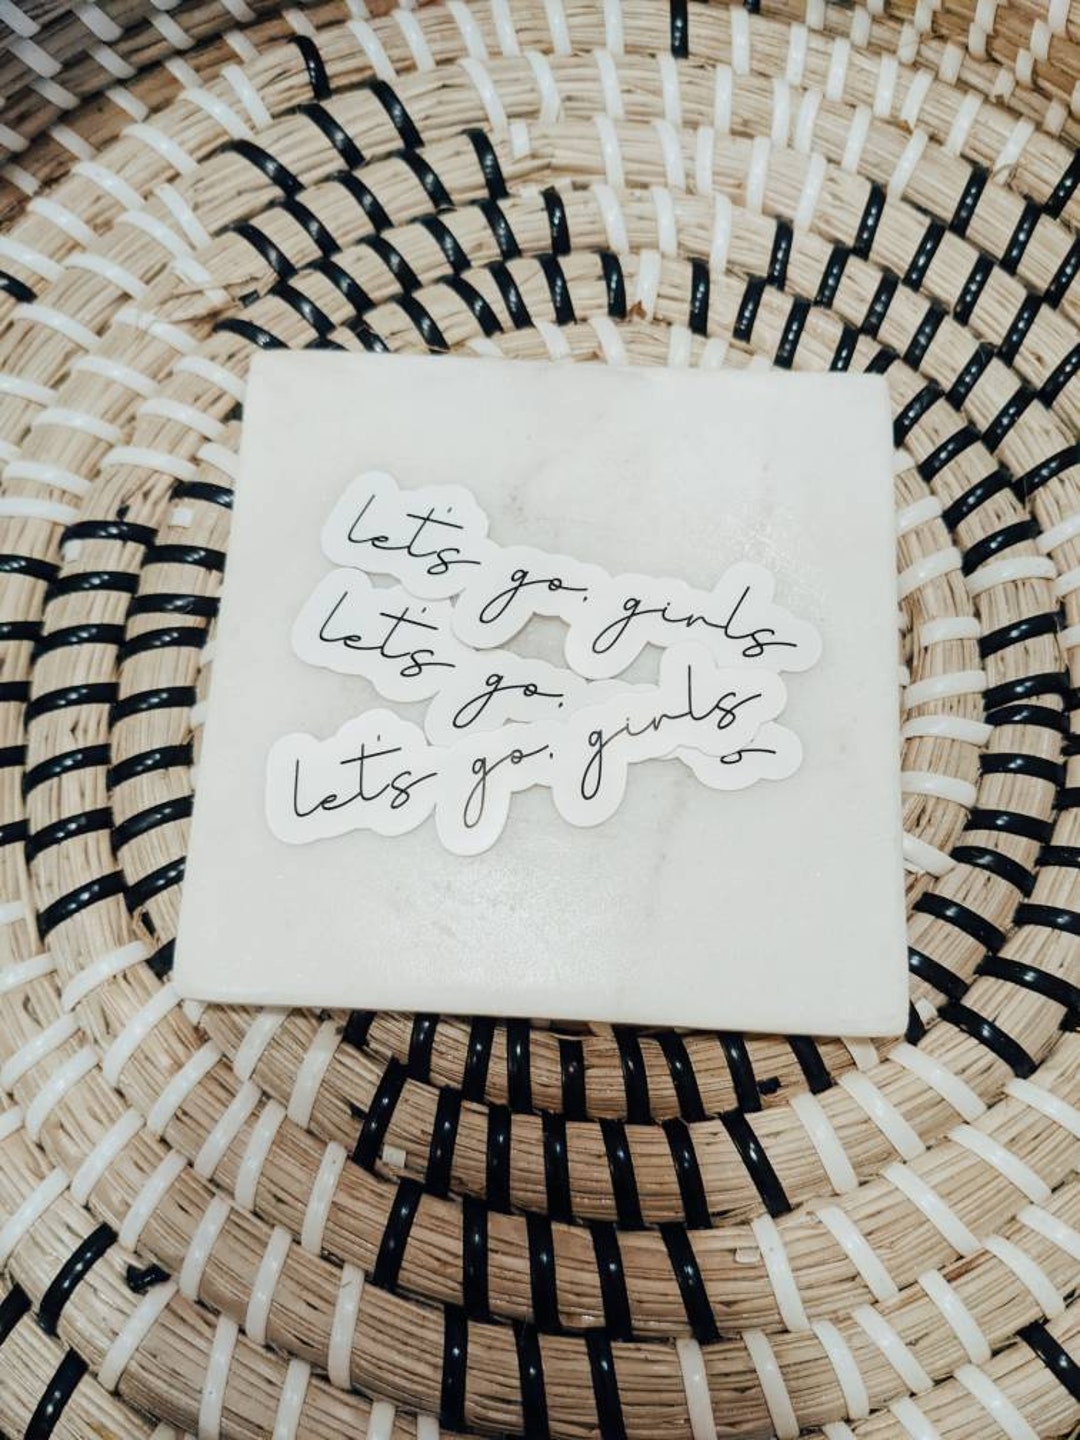 let's go, girls
let's go,
let's go, girls